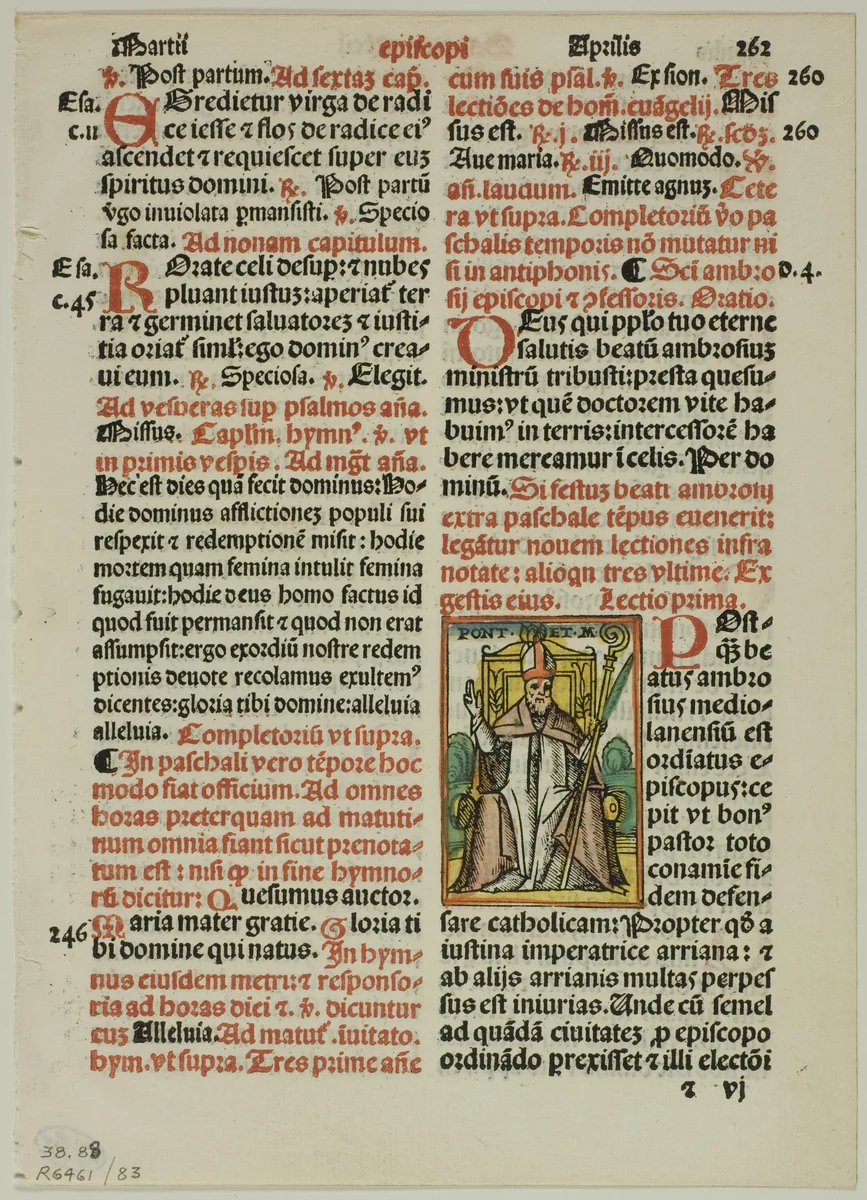 Martii episcopi Aprilis 262
℣. Post partum. Ad sextaʒ cap̄.
Esa. EGredietur virga de radi
c.11 ce iesse ⁊ flos de radice eiꝰ
ascendet ⁊ requiescet super euʒ
spiritus domini. ℟. Post partū
v̄go inuiolata ꝑmansisti. ℣. Specio
sa facta. Ad nonam capitulum.
Esa. ROrate celi desuꝑ: ⁊ nubes
c.45 pluant iustuʒ: aperiat̄ ter
ra ⁊ germinet saluatoreʒ ⁊ iusti-
tia oriat̄ siml̄: ego dominꝰ crea-
ui eum. ℟. Speciosa. ℣. Elegit.
Ad vesperas suꝑ psalmos aña.
Missus. Capl̄m. hymnꝰ. ℣. vt
in primis vesꝑis. Ad mgt̄ aña.
Hec est dies quā fecit dominus: Ho-
die dominus afflictioneʒ populi sui
respexit ⁊ redemptionē misit: hodie
mortem quam femina intulit femina
fugauit: hodie deus homo factus id
quod fuit permansit ⁊ quod non erat
assumpsit: ergo exordiū nostre redem
ptionis deuote recolamus exultemꝰ
dicentes: gloria tibi domine: alleluia
alleluia. Completoriū vt supra.
¶ In paschali vero tēpore hoc
modo fiat officium. Ad omnes
horas preterquam ad matuti-
num omnia fiant sicut prenota-
tum est: nisi ꝙ in fine hymno-
rū dicitur: Quesumus auctor.
246 Maria mater gratie. Gloria ti
bi domine qui natus. In hym-
nus eiusdem metri: ⁊ responso-
ria ad horas diei ⁊. ℣. dicuntur
cuʒ Alleluia. Ad matut̄. īuitato.
hym. vt supra. Tres prime añe
cum suis psal. ℣. Ex sion. Tres 260
lectiōes de hom̄. euāgelij. Mis
sus est. ℟. j. Missus est. ℟. scd̄ʒ. 260
Aue maria. ℟. iij. Quomodo. ℣.
añ. laudum. Emitte agnuʒ. Cete
ra vt supra. Completoriū v̄o pa
schalis temporis nō mutatur ni
si in antiphonis. ¶ Sc̄i ambro D.4.
sij episcopi ⁊ ꝯfessoris. Oratio.
DEus qui ppl̄o tuo eterne
salutis beatū ambrosiuʒ
ministrū tribusti: p̄sta quesu-
mus: vt quē doctorem vite ha-
buimꝰ in terris: intercessorē ha
bere mereamur ī celis. Per do
minū. Si festuʒ beati ambrosij
extra paschale tēpus euenerit:
legātur nouem lectiones infra
notate: alioqn tres vltime. Ex
gestis eius. Lectio prima.
PONT. ET. M
POst-
q̄ʒ be
atus ambro
sius medio-
lanensiū est
ordīatus e-
piscopus: ce
pit vt bonꝰ
pastor toto
conamīe fi-
dem defen-
sare catholicam: Propter qd̄ a
iustina imperatrice arriana: ⁊
ab alijs arrianis multas perpes
sus est iniurias. Unde cū semel
ad quādā ciuitateʒ ꝓ episcopo
ordinādo ꝑrexisset ⁊ illi electōi
⁊ vj
38.88
R6461/83